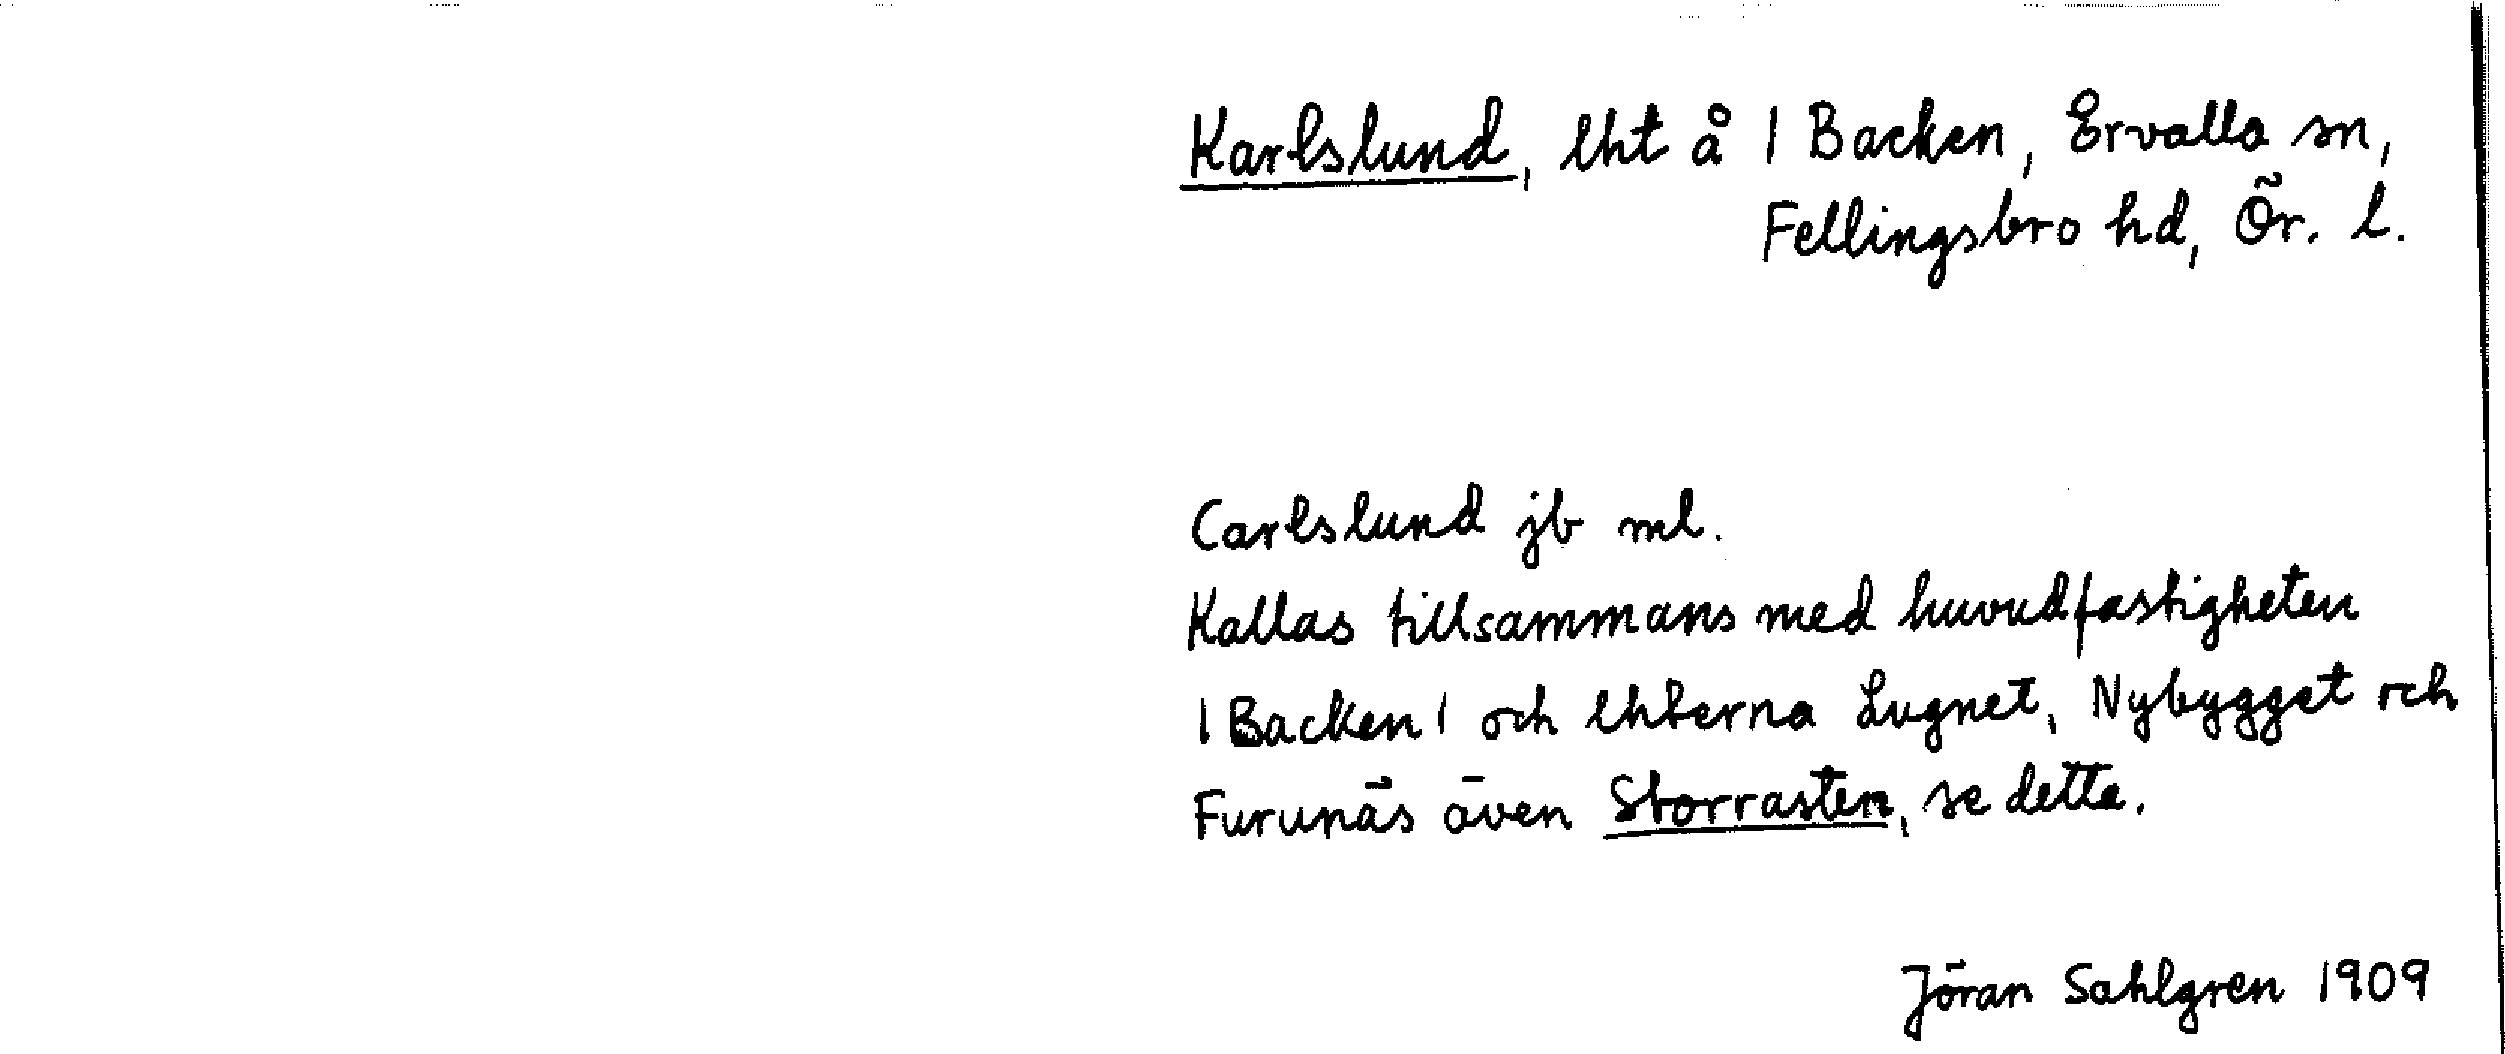 Karlslund, lht å 1 Backen, Ervalla sn,
Fellingsbro hd, Ör. l.
Carlslund jb ml.
Kallas tillsammans med huvudfastigheten
1 Backen 1 och lhterna Lugnet, Nybygget och
Furunäs även Storrasten, se detta.
Jöran Sahlgren 1909